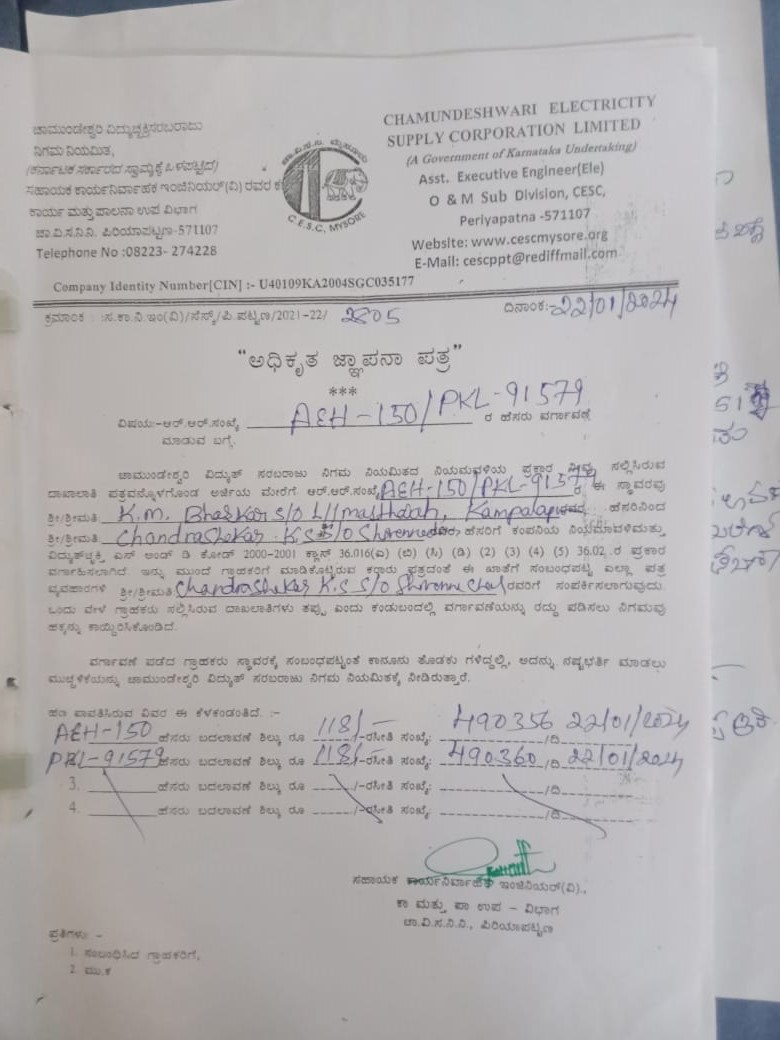 ಚಾಮುಂಡೇಶ್ವರಿ ವಿದ್ಯುಚ್ಛಕ್ತಿ ಸರಬರಾಜು
ನಿಗಮ ನಿಯಮಿತ,
(ಕರ್ನಾಟಕ ಸರ್ಕಾರದ ಸ್ವಾಮ್ಯಕ್ಕೆ ಒಳಪಟ್ಟಿದೆ)
ಸಹಾಯಕ ಕಾರ್ಯನಿರ್ವಾಹಕ ಇಂಜಿನಿಯರ್(ವಿ) ರವರ ಕ
ಕಾರ್ಯ ಮತ್ತು ಪಾಲನಾ ಉಪ ವಿಭಾಗ
ಚಾ.ವಿ.ಸ.ನಿ.ನಿ. ಪಿರಿಯಾಪಟ್ಟಣ-571107
Telephone No :08223- 274228
ಚಾ.ವಿ.ಸ.ನಿ. ಮೈಸೂರು
C.E.S.C, MYSORE
CHAMUNDESHWARI ELECTRICITY
SUPPLY CORPORATION LIMITED
(A Government of Karnataka Undertaking)
Asst. Executive Engineer(Ele)
O & M Sub Division, CESC,
Periyapatna -571107
Website: www.cescmysore.org
E-Mail: cescppt@rediffmail.com
Company Identity Number[CIN] :- U40109KA2004SGC035177
ಕ್ರಮಾಂಕ :ಸ.ಕಾ.ನಿ.ಇಂ(ವಿ)/ಸೆಸ್ಕ್/ಪಿ.ಪಟ್ಟಣ/2021-22/ 2805 ದಿನಾಂಕ:-22/01/2024
"ಅಧಿಕೃತ ಜ್ಞಾಪನಾ ಪತ್ರ"
***
ವಿಷಯ:-ಆರ್.ಆರ್.ಸಂಖ್ಯೆ AEH-150/PKL-91579 ರ ಹೆಸರು ವರ್ಗಾವಣೆ
ಮಾಡುವ ಬಗ್ಗೆ.
ಚಾಮುಂಡೇಶ್ವರಿ ವಿದ್ಯುತ್ ಸರಬರಾಜು ನಿಗಮ ನಿಯಮಿತದ ನಿಯಮವಳಿಯ ಪ್ರಕಾರ ನೀವು ಸಲ್ಲಿಸಿರುವ
ದಾಖಲಾತಿ ಪತ್ರವನ್ನೊಳಗೊಂಡ ಅರ್ಜಿಯ ಮೇರೆಗೆ ಆರ್.ಆರ್.ಸಂಖ್ಯೆ AEH-150/PKL-91579 ರ ಈ ಸ್ಥಾವರವು
ಶ್ರೀ/ಶ್ರೀಮತಿ K.M. Bhaskar S/o L/l masthaiah, Kampalapura ರವರ ಹೆಸರಿನಿಂದ
ಶ್ರೀ/ಶ್ರೀಮತಿ Chandrashekar K.S S/o ರವರ, ಹೆಸರಿಗೆ ಕಂಪನಿಯ ನಿಯಮಾವಳಿಮತ್ತು
ವಿದ್ಯುಚ್ಛಕ್ತಿ ಎಸ್ ಅಂಡ್ ಡಿ ಕೋಡ್ 2000-2001 ಕ್ಲಾಸ್ 36.016(ಎ) (ಬಿ) (ಸಿ) (ಡಿ) (2) (3) (4) (5) 36.02 ರ ಪ್ರಕಾರ
ವರ್ಗಾಹಿಸಲಾಗಿದೆ. ಇನ್ನು ಮುಂದೆ ಗ್ರಾಹಕರಿಗೆ ಮಾಡಿಕೊಟ್ಟಿರುವ ಕರಾರು ಪತ್ರದಂತೆ ಈ ಖಾತೆಗೆ ಸಂಬಂಧಪಟ್ಟ ಎಲ್ಲಾ ಪತ್ರ
ವ್ಯವಹಾರಗಳಿ ಶ್ರೀ/ಶ್ರೀಮತಿ Chandrashekar K.S S/o ರವರಿಗೆ ಸಂಪರ್ಕಿಸಲಾಗುವುದು.
ಒಂದು ವೇಳೆ ಗ್ರಾಹಕರು ಸಲ್ಲಿಸಿರುವ ದಾಖಲಾತಿಗಳು ತಪ್ಪು ಎಂದು ಕಂಡುಬಂದಲ್ಲಿ ವರ್ಗಾವಣೆಯನ್ನು ರದ್ದು ಪಡಿಸಲು ನಿಗಮವು
ಹಕ್ಕನ್ನು ಕಾಯ್ದಿರಿಸಿಕೊಂಡಿದೆ.
ವರ್ಗಾವಣೆ ಪಡೆದ ಗ್ರಾಹಕರು ಸ್ಥಾವರಕ್ಕೆ ಸಂಬಂಧಪಟ್ಟಂತೆ ಕಾನೂನು ತೊಡಕು ಗಳಿದ್ದಲ್ಲಿ, ಅದನ್ನು ನಷ್ಟಭರ್ತಿ ಮಾಡಲು
ಮುಚ್ಚಳಿಕೆಯನ್ನು ಚಾಮುಂಡೇಶ್ವರಿ ವಿದ್ಯುತ್ ಸರಬರಾಜು ನಿಗಮ ನಿಯಮಿತಕ್ಕೆ ನೀಡಿರುತ್ತಾರೆ.
ಹಣ ಪಾವತಿಸಿರುವ ವಿವರ ಈ ಕೆಳಕಂಡಂತಿದೆ. :-
AEH-150 ಹೆಸರು ಬದಲಾವಣೆ ಶಿಲ್ಕು ರೂ 118/- ರಸೀತಿ ಸಂಖ್ಯೆ: 490356 /ದಿ 22/01/2024
PKL-91579 ಹೆಸರು ಬದಲಾವಣೆ ಶಿಲ್ಕು ರೂ 118/- ರಸೀತಿ ಸಂಖ್ಯೆ: 490360 /ದಿ 22/01/2024
3. ಹೆಸರು ಬದಲಾವಣೆ ಶಿಲ್ಕು ರೂ /-ರಸೀತಿ ಸಂಖ್ಯೆ: /ದಿ
4. ಹೆಸರು ಬದಲಾವಣೆ ಶಿಲ್ಕು ರೂ /-ರಸೀತಿ ಸಂಖ್ಯೆ: /ದಿ
ಸಹಾಯಕ ಕಾರ್ಯನಿರ್ವಾಹಕ ಇಂಜಿನಿಯರ್(ವಿ).,
ಕಾ ಮತ್ತು ಪಾ ಉಪ – ವಿಭಾಗ
ಚಾ.ವಿ.ಸ.ನಿ.ನಿ., ಪಿರಿಯಾಪಟ್ಟಣ
ಪ್ರತಿಗಳು: -
1. ಸಂಬಂಧಿಸಿದ ಗ್ರಾಹಕರಿಗೆ,
2. ಮು.ಕ